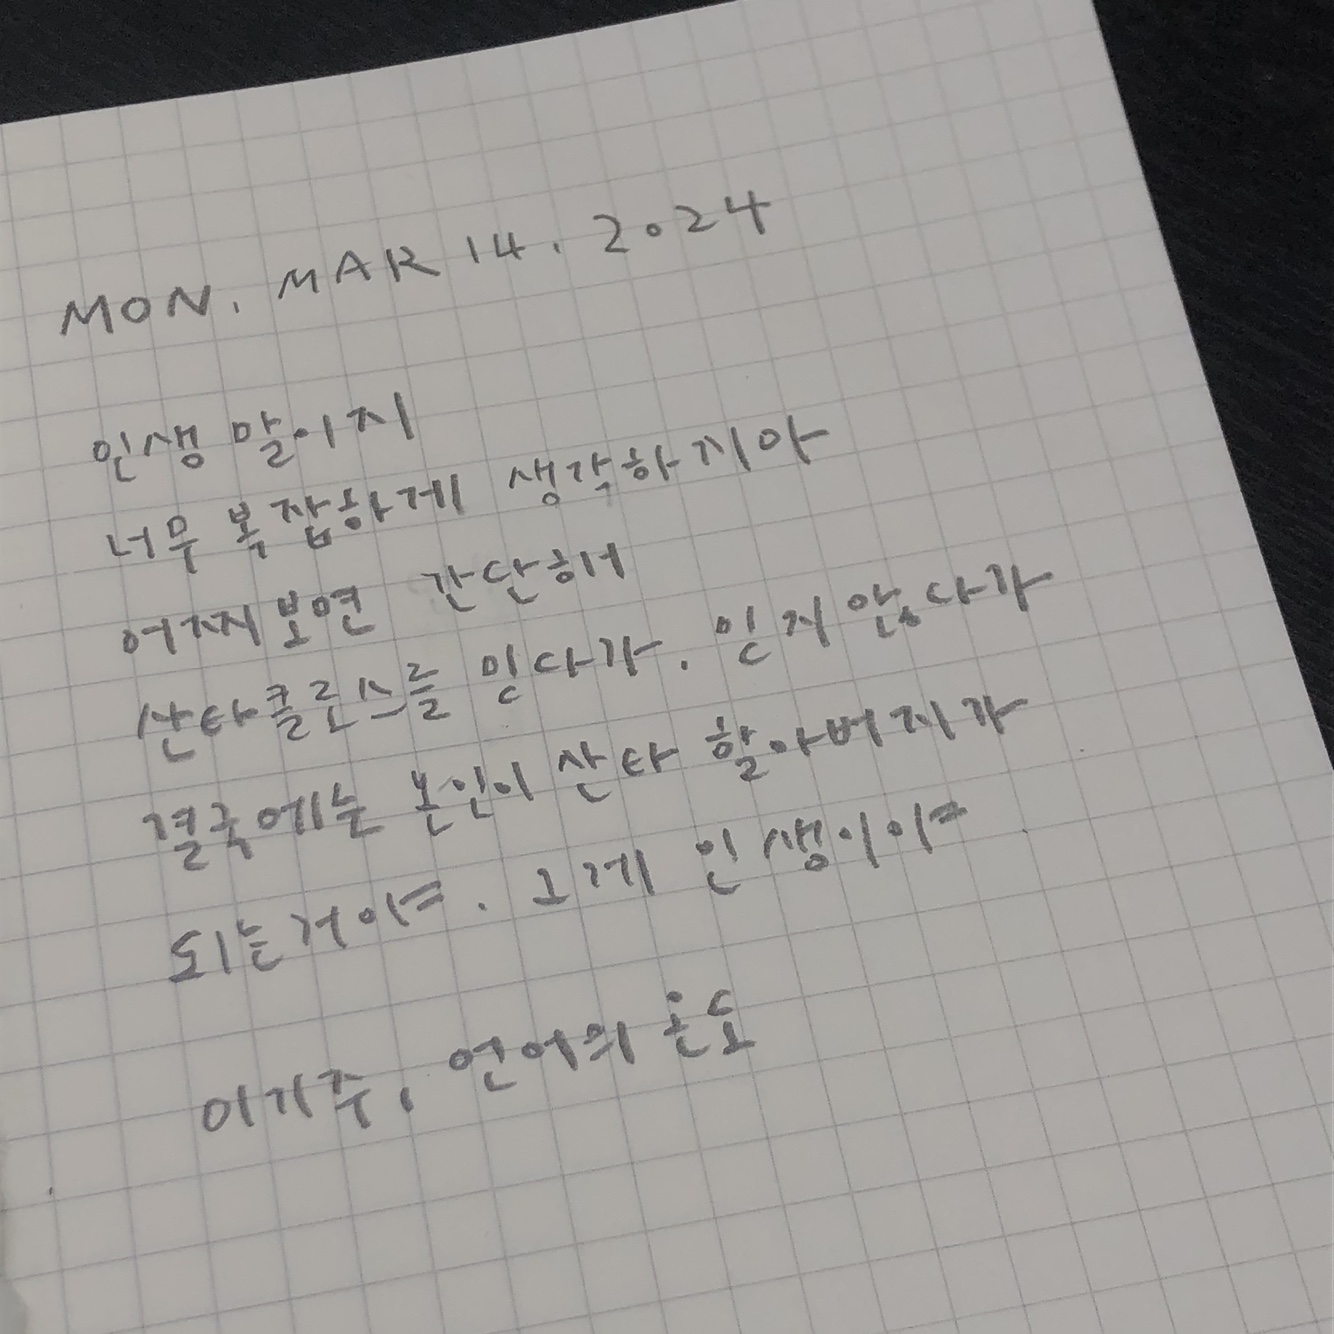 MON. MAR 14. 2024
인생 말이지
너무 복잡하게 생각하지마
어찌보면 간단해
산타클로스를 믿다가. 믿지 않다가
결국에는 본인이 산타 할아버지가
되는거야. 그게 인생이야
이기주, 언어의 온도